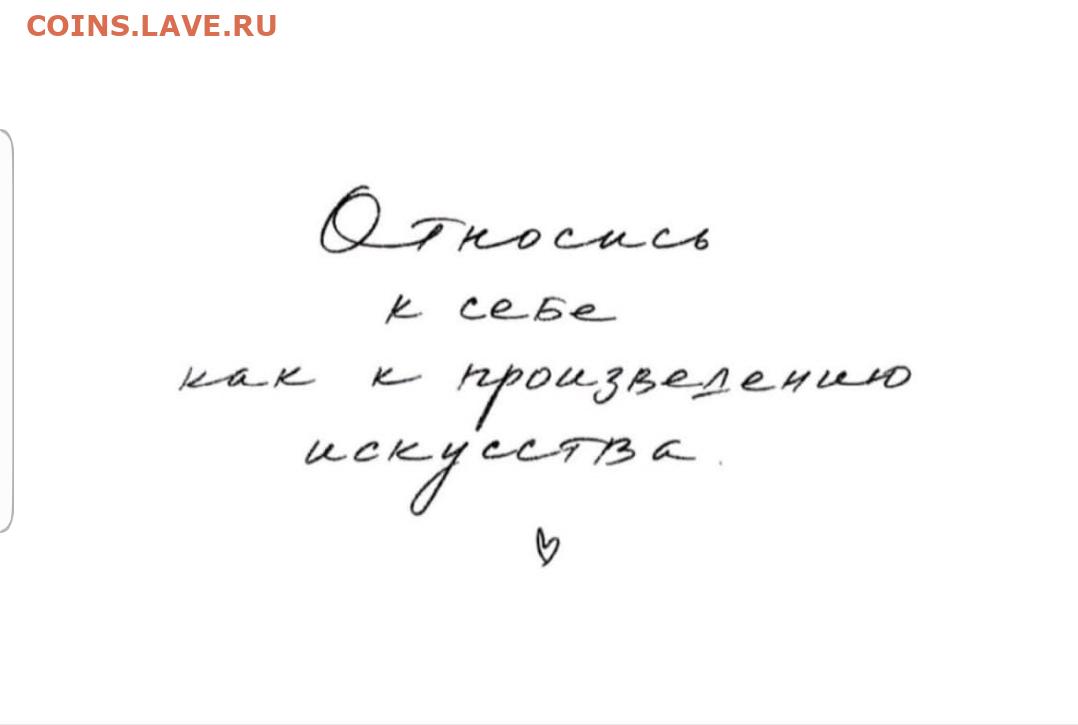 COINS.LAVE.RU
Относись
к себе
как к произведению
искусства.